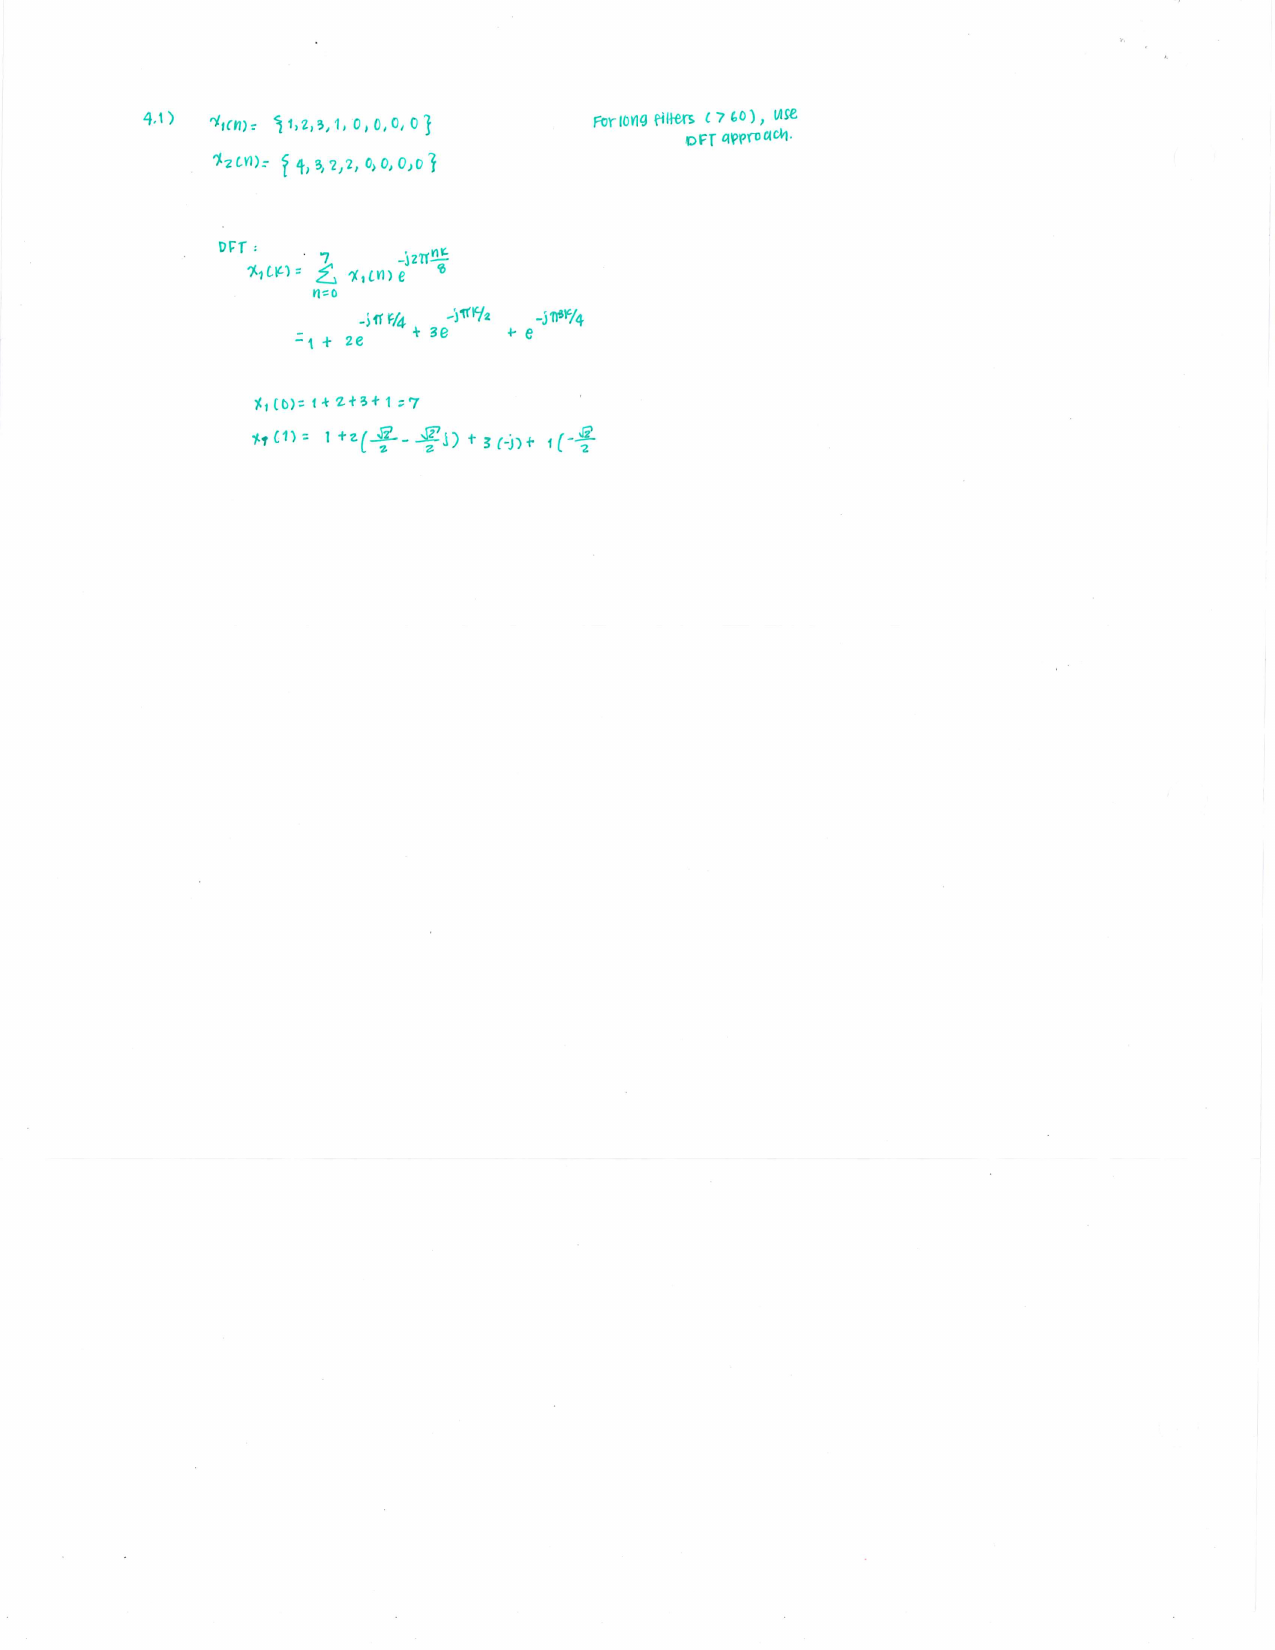 4.1) x₁(n) = {1, 2, 3, 1, 0, 0, 0, 0}
For long filters (>60), use
DFT approach.
x₂(n) = {4, 3, 2, 2, 0, 0, 0, 0}
DFT :
x₁(k) = Σ_{n=0}^{7} x₁(n) e^{-j2π nk/8}
= 1 + 2e^{-jπk/4} + 3e^{-jπk/2} + e^{-jπ3k/4}
x₁(0) = 1 + 2 + 3 + 1 = 7
x₁(1) = 1 + 2(√2/2 - √2/2 j) + 3(-j) + 1(-√2/2